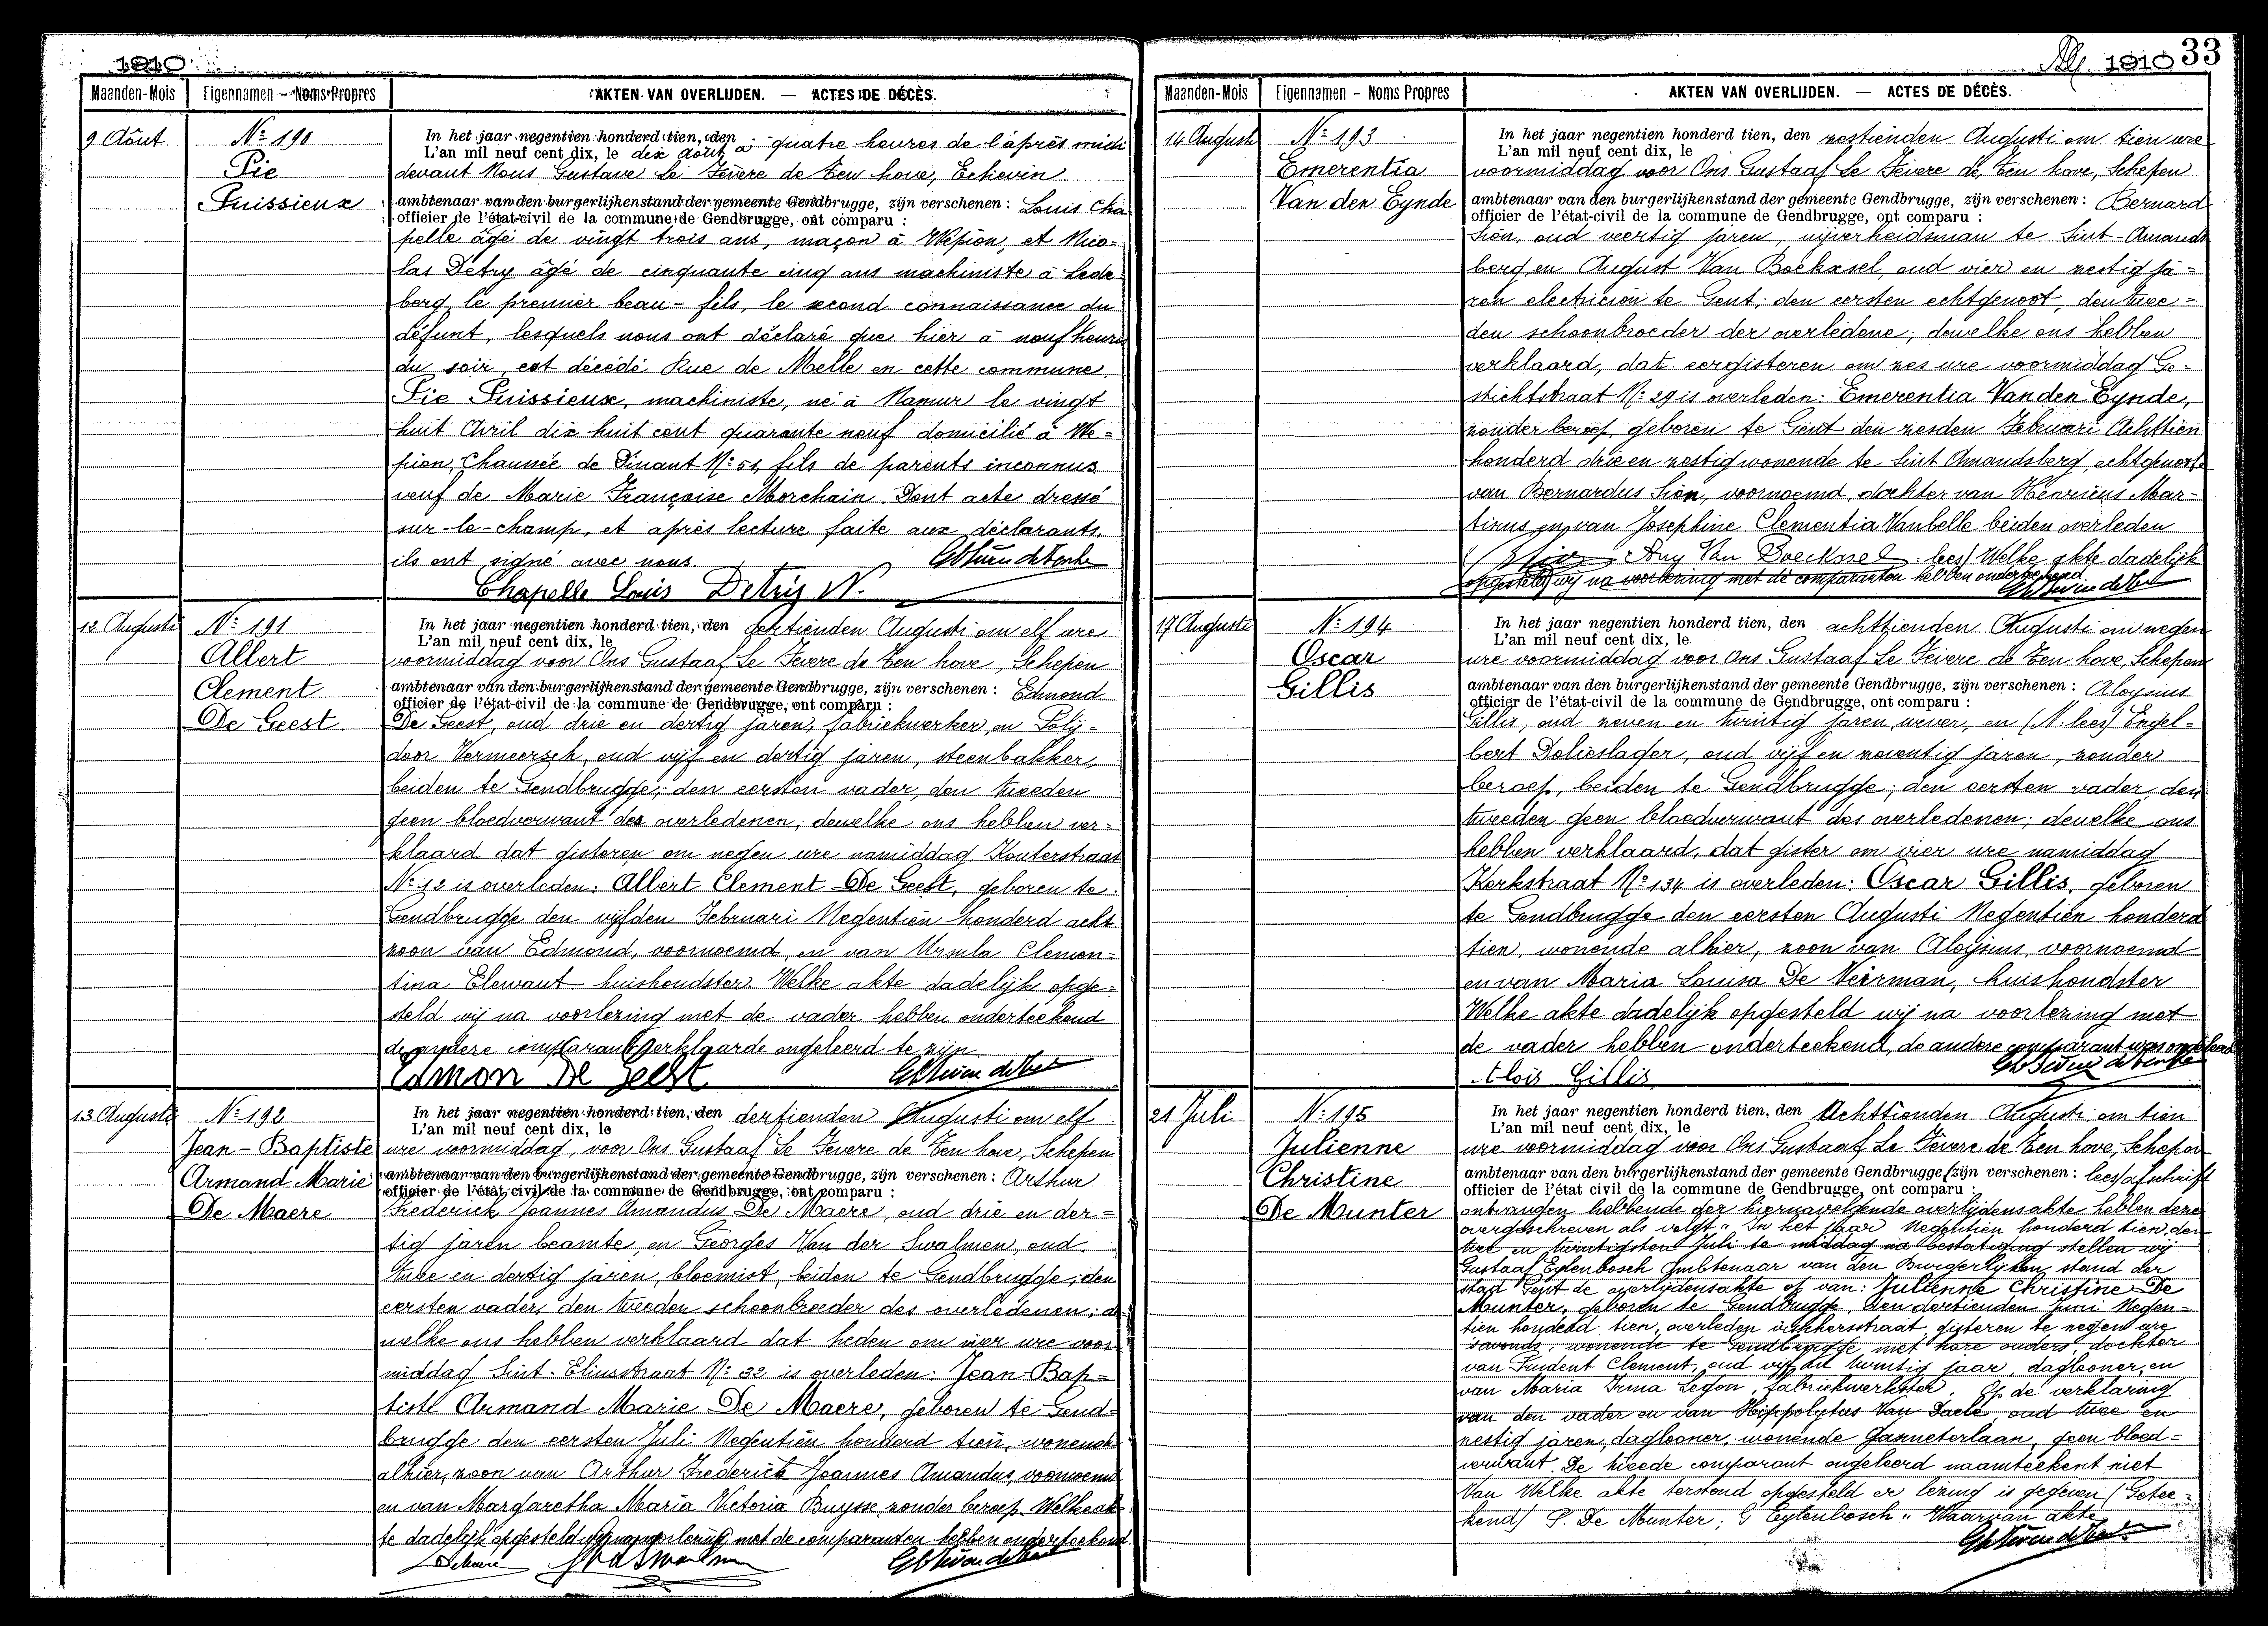 1910
Maanden-Mois Eigennamen - Noms Propres AKTEN VAN OVERLIJDEN. — ACTES DE DÉCÈS.
9 Août
Nº 190
Pie
Puissieux
In het jaar negentien honderd tien, den
L'an mil neuf cent dix, le dix août à quatre heures de l'après midi
devant Nous Gustave Le Fèvere de Ten hove, Echevin
ambtenaar van den burgerlijkenstand der gemeente Gendbrugge, zijn verschenen : Louis Cha
officier de l'état-civil de la commune de Gendbrugge, ont comparu :
pelle âgé de vingt trois ans, maçon à Wépion, et Nico-
las Detry âgé de cinquante cinq ans machiniste à Lede-
berg, le premier beau-fils, le second connaissance du
défunt, lesquels nous ont déclaré que hier à neuf heures
du soir, est décédé Rue de Melle en cette commune,
Pie Puissieux, machiniste, né à Namur le vingt
huit Avril dix huit cent quarante neuf domicilié à We-
pion, Chaussée de Dinant Nº 51, fils de parents inconnus
veuf de Marie Françoise Morchain Dont acte dressé
sur-le-champ, et après lecture faite aux déclarants,
ils ont signé avec nous
Chapelle Louis Detry N.
12 Augusti
Nº 191
Albert
Clement
De Geest
In het jaar negentien honderd tien, den dertienden Augusti om elf ure
L'an mil neuf cent dix, le
voormiddag voor Ons Gustaaf Le Fevere de Ten hove, Schepen
ambtenaar van den burgerlijkenstand der gemeente Gendbrugge, zijn verschenen : Edmond
officier de l'état-civil de la commune de Gendbrugge, ont comparu :
De Geest, oud drie en dertig jaren, fabriekwerker, en Poly-
door Vermeersch, oud vijf en dertig jaren, steenbakker,
beiden te Gendbrugge; den eersten vader, den tweeden
geen bloedverwant des overledenen; dewelke ons hebben ver-
klaard dat gisteren om negen ure namiddag Kouterstraat
Nº 12 is overleden: Albert Clement De Geest, geboren te
Gendbrugge den vijfden Februari Negentien honderd acht
zoon van Edmond, voornoemd, en van Ursula Clemen-
tina Elewaut huishoudster. Welke akte dadelijk opge-
steld wij na voorlezing met de vader hebben onderteekend
de andere comparant verklaarde ongeleerd te zijn
Edmon De Geest
13 Augusti
Nº 192
Jean-Baptiste
Armand Marie
De Maere
In het jaar negentien honderd tien, den dertienden Augusti om elf
L'an mil neuf cent dix, le
ure voormiddag, voor Ons Gustaaf Le Fevere de Ten hove, Schepen
ambtenaar van den burgerlijkenstand der gemeente Gendbrugge, zijn verschenen : Arthur
officier de l'état civil de la commune de Gendbrugge, ont comparu :
Frederick Joannes Amandus De Maere, oud drie en der-
tig jaren beamte, en Georges Van der Swalmen, oud
twee en dertig jaren, bloemist, beiden te Gendbrugge; den
eersten vader, den tweeden schoonbroeder des overledenen; de-
welke ons hebben verklaard dat heden om vier ure voor
middag Sint-Eliusstraat Nº 32 is overleden: Jean-Bap-
tiste Armand Marie De Maere, geboren te Gend-
brugge den eersten Juli Negentien honderd tien, wonende
alhier, zoon van Arthur Frederick Joannes Amandus, voornoemd
en van Margaretha Maria Victoria Buysse, zonder beroep. Welke ak-
te dadelijk opgesteld wij na voorlezing met de comparanten hebben onderteekend
1910 33
Maanden-Mois Eigennamen - Noms Propres AKTEN VAN OVERLIJDEN. — ACTES DE DÉCÈS.
14 Augusti
Nº 193
Emerentia
Van den Eynde
In het jaar negentien honderd tien, den zestienden Augusti om tien ure
L'an mil neuf cent dix, le
voormiddag voor Ons Gustaaf Le Fevere de Ten hove, Schepen
ambtenaar van den burgerlijkenstand der gemeente Gendbrugge, zijn verschenen : Bernard
officier de l'état-civil de la commune de Gendbrugge, ont comparu :
Sion, oud veertig jaren, nijverheidsman te Sint-Amands
berg, en August Van Boekxsel, oud vier en zestig ja-
ren electricien te Gent; den eersten echtgenoot, den twee-
den schoonbroeder der overledene; dewelke ons hebben
verklaard, dat eergisteren om zes ure voormiddag Ge-
stichtstraat Nº 29 is overleden: Emerentia Van den Eynde,
zonder beroep, geboren te Gent den zesden Februari Achttien
honderd drie en zestig wonende te Sint Amandsberg, echtgenoote
van Bernardus Sion, voornoemd, dochter van Henricus Mar-
tinus, en van Josephine Clementia Vanbelle beiden overleden
Aug Van Boeckxsel lees/ Welke akte dadelijk
opgesteld wij na voorlezing met de comparanten hebben onderteekend.
17 Augusti
Nº 194
Oscar
Gillis
In het jaar negentien honderd tien, den achttienden Augusti om negen
L'an mil neuf cent dix, le
ure voormiddag voor Ons Gustaaf Le Fevere de Ten hove, Schepen
ambtenaar van den burgerlijkenstand der gemeente Gendbrugge, zijn verschenen : Aloysius
officier de l'état-civil de la commune de Gendbrugge, ont comparu :
Gillis, oud zeven en twintig jaren, wever, en (N. lees) Engel-
bert Delieslager, oud vijf en zeventig jaren, zonder
beroep, beiden te Gendbrugge; den eersten vader, den
tweeden geen bloedverwant des overledenen; dewelke ons
hebben verklaard, dat gister om vier ure namiddag
Kerkstraat Nº 134 is overleden: Oscar Gillis, geboren
te Gendbrugge den eersten Augusti Negentien honderd
tien, wonende alhier, zoon van Aloysius, voornoemd
en van Maria Louisa De Veirman, huishoudster
Welke akte dadelijk opgesteld wij na voorlezing met
de vader hebben onderteekend, de andere comparant was ongeleerd
Alois Gillis
21 Juli
Nº 195
Julienne
Christine
De Munter
In het jaar negentien honderd tien, den Achttienden Augusti om tien
L'an mil neuf cent dix, le
ure voormiddag voor Ons Gustaaf Le Fevere de Ten hove, Schepen
ambtenaar van den burgerlijkenstand der gemeente Gendbrugge, zijn verschenen : lees/ afschrift
officier de l'état civil de la commune de Gendbrugge, ont comparu :
ontvangen hebbende der hiernavolgende overlijdensakte hebben deze
overgeschreven als volgt " In het jaar Negentien honderd tien, den
twee en twintigsten Juli te middag na bestatiging stellen wij
Gustaaf Eylenbosch Ambtenaar van den Burgerlijken stand der
stad Gent de overlijdensakte op van: Julienne Christine De
Munter, geboren te Gendbrugge, den dertienden Juni Negen-
tien honderd tien, overleden visschersstraat, gisteren te negen ure
s'avonds, wonende te Gendbrugge, met hare ouders, dochter
van Prudent Clement, oud vijf en twintig jaar, daglooner, en
van Maria Irma Legon, fabriekwerkster. Op de verklaring
van den vader en van Hippolytus Van Daele, oud twee en
zestig jaren, daglooner, wonende Ganneterlaan, geen bloed-
verwant. De tweede comparant ongeleerd naamteekent niet
Van Welke akte terstond opgesteld er lezing is gegeven (Getee-
kend) P. De Munter; G Eylenbosch " Waarvan akte